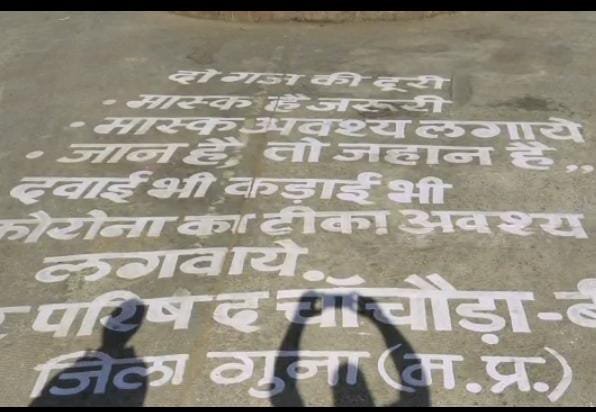 दो गज की दूरी
• मास्क है जरूरी
• मास्क अवश्य लगाये
• जान है, तो जहान है,,
दवाई भी कड़ाई भी
कोरोना का टीका अवश्य
लगवाये.
परिषद चाँचौड़ा-
जिला गुना (म.प्र.)